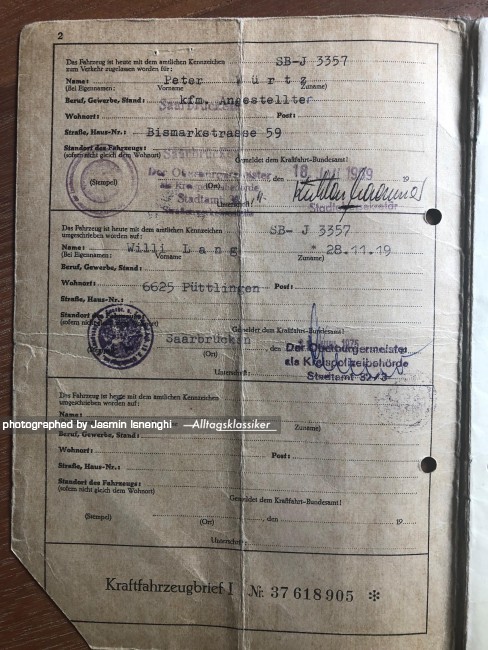 2
Das Fahrzeug ist heute mit dem amtlichen Kennzeichen SB-J 3357
zum Verkehr zugelassen worden für:
Name: Peter Würtz
(Bei Eigennamen: Vorname Zuname)
Beruf, Gewerbe, Stand: kfm. Angestellter
Wohnort: Saarbrücken Post:
Straße, Haus-Nr.: Bismarkstrasse 59
Standort des Fahrzeugs: Saarbrücken
(sofern nicht gleich dem Wohnort) Gemeldet dem Kraftfahrt-Bundesamt!
Der Oberbürgermeister
(Stempel) (Ort) , den 18. 19
als Kreispolizeibehörde
Stadtamt
Das Fahrzeug ist heute mit dem amtlichen Kennzeichen SB- J 3357
umgeschrieben worden auf:
Name: Willi Lang * 28.11.19
(Bei Eigennamen: Vorname Zuname)
Beruf, Gewerbe, Stand:
Wohnort: 6625 Püttlingen Post:
Straße, Haus-Nr.:
Standort des Fahrzeugs:
(sofern nicht gleich dem Wohnort) Gemeldet dem Kraftfahrt-Bundesamt!
Saarbrücken , den 1975
(Ort) Der Oberbürgermeister
als Kreispolizeibehörde
Unterschrift: Stadtamt 32/3
Das Fahrzeug ist heute mit dem amtlichen Kennzeichen
umgeschrieben worden auf:
Name:
photographed by Jasmin Isnenghi —Alltagsklassiker
(Bei Eigennamen: Zuname)
Beruf, Gewerbe, Stand:
Wohnort: Post:
Straße, Haus-Nr.:
Standort des Fahrzeugs:
(sofern nicht gleich dem Wohnort) Gemeldet dem Kraftfahrt-Bundesamt!
(Stempel) (Ort) , den 19
Unterschrift:
Kraftfahrzeugbrief I Nr. 37 618 905 ✻